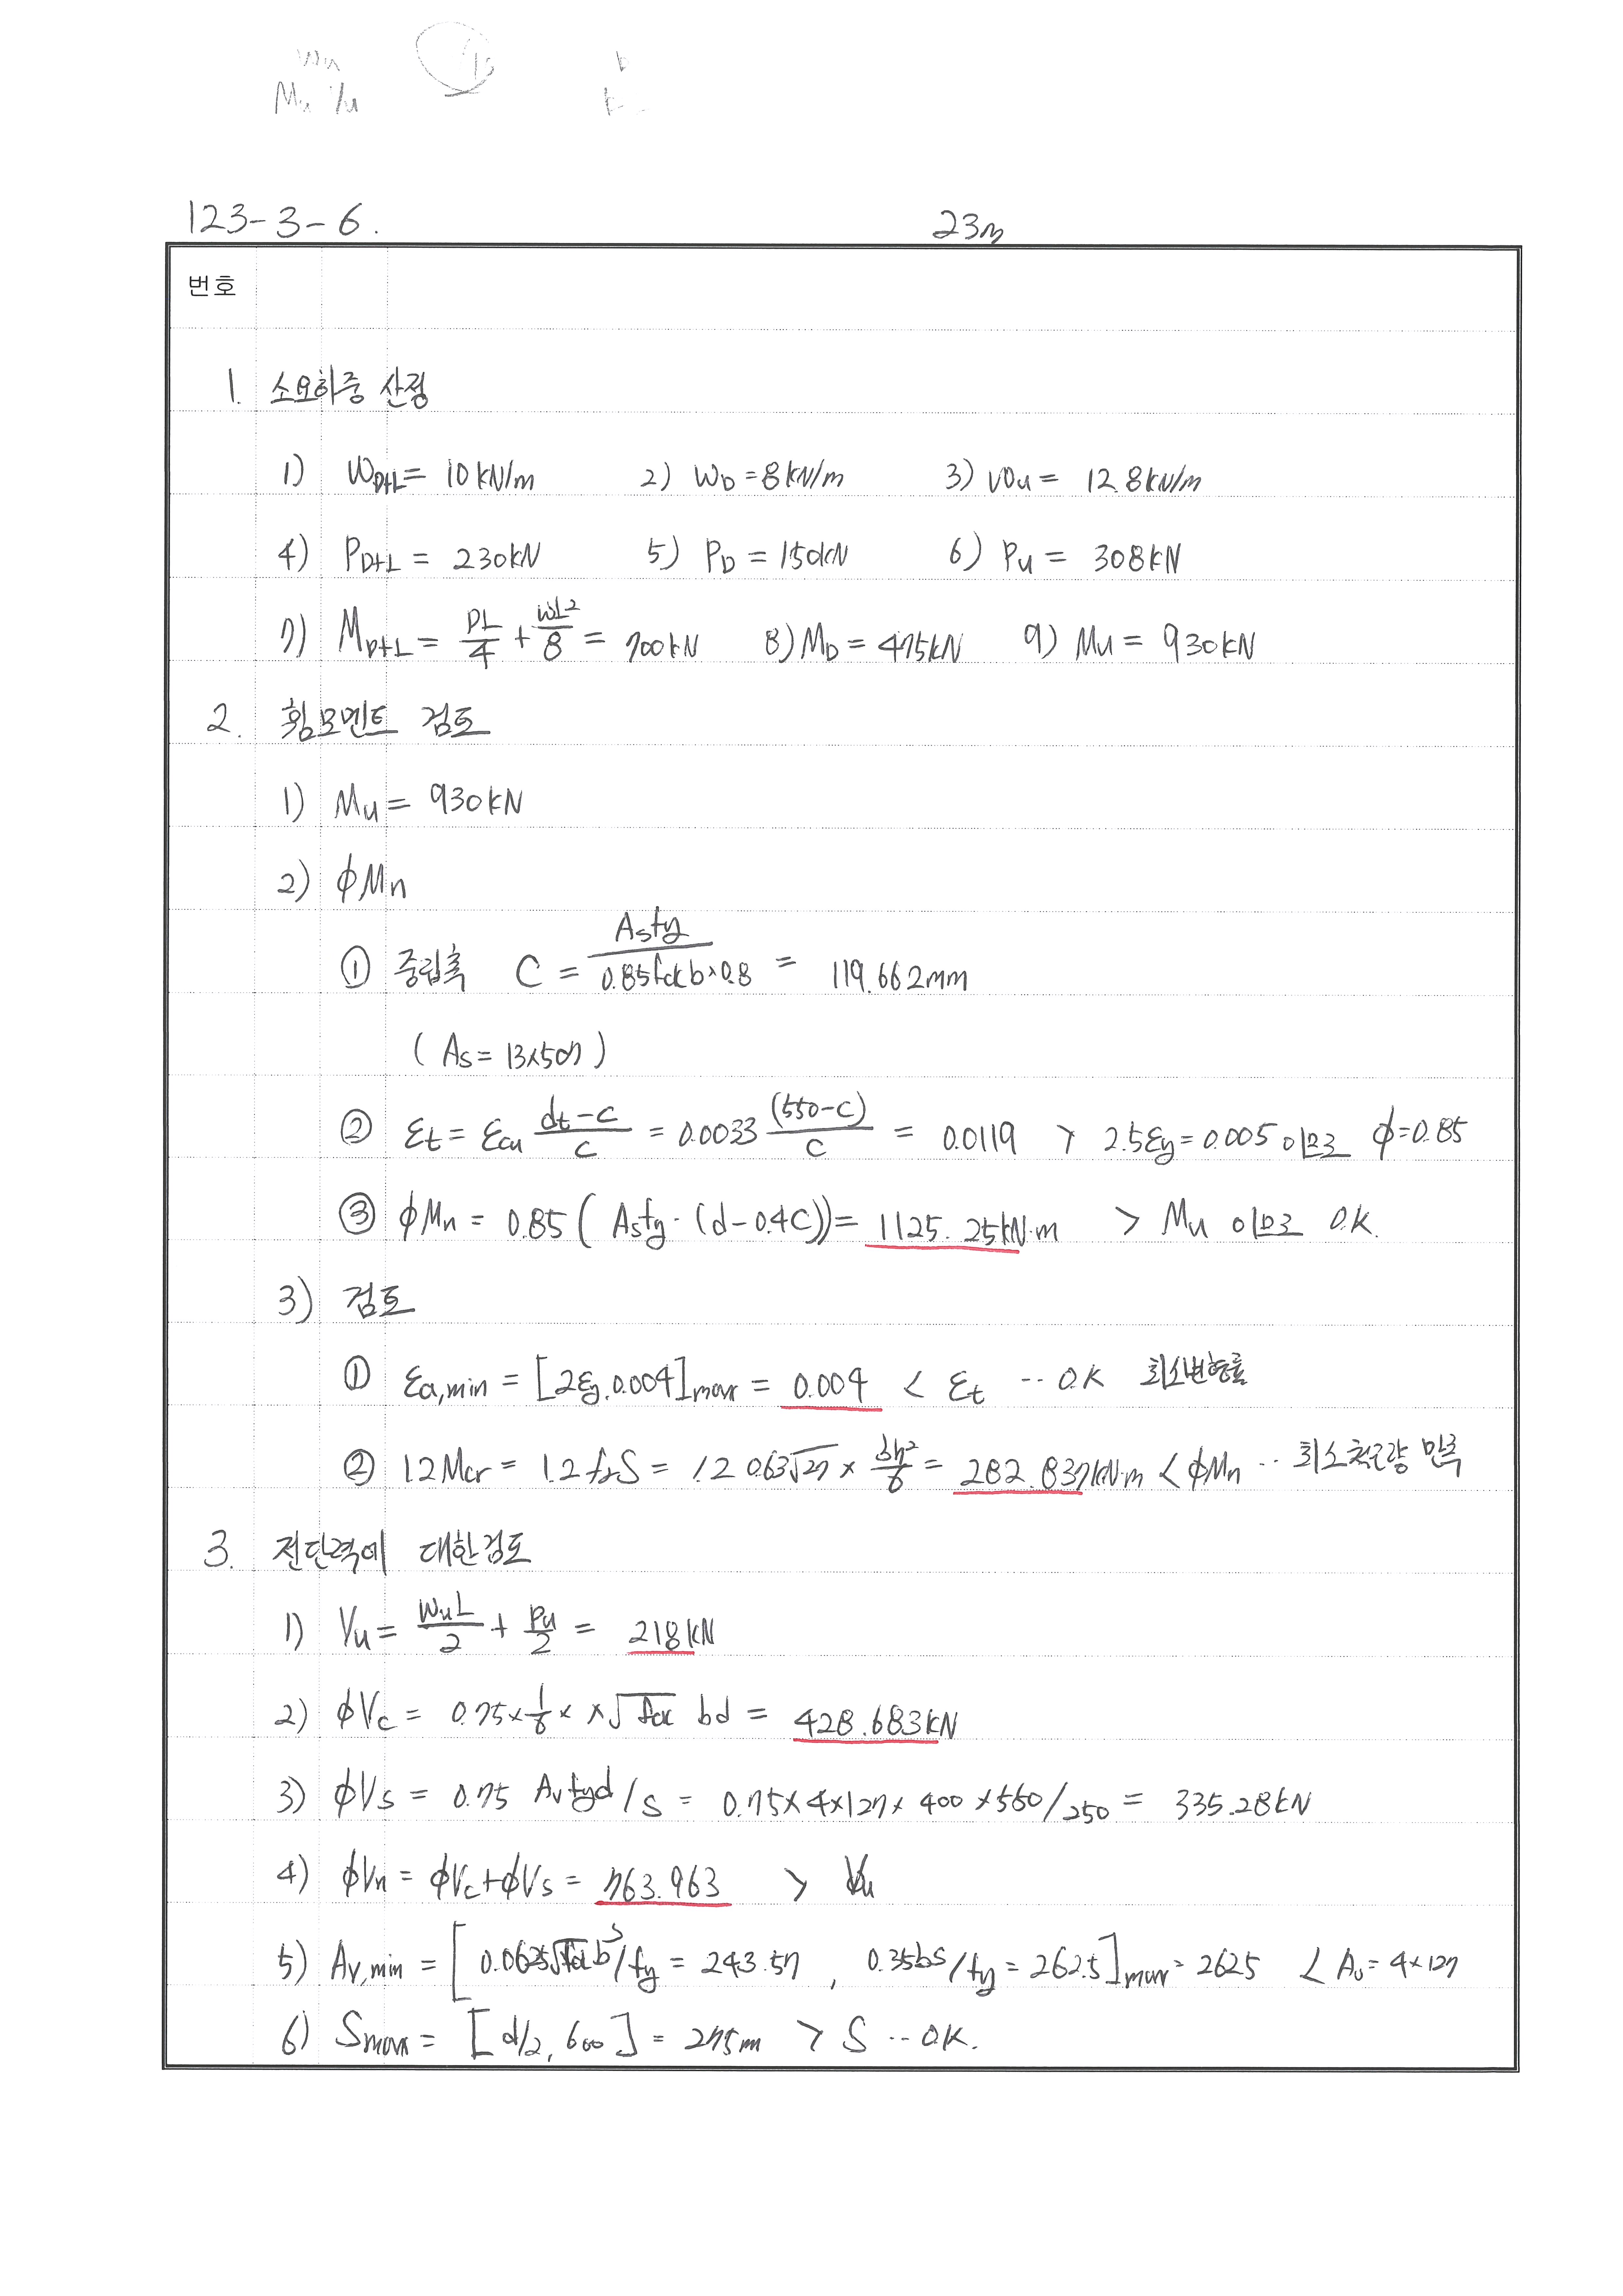 Mu Vu
123-3-6. 23m
번호
1. 소요하중 산정
1) W_{D+L} = 10kN/m 2) W_D = 8kN/m 3) W_u = 12.8kN/m
4) P_{D+L} = 230kN 5) P_D = 150kN 6) P_u = 308kN
7) M_{D+L} = PL/4 + wL²/8 = 700kN 8) M_D = 475kN 9) M_u = 930kN
2. 휨모멘트 검토
1) M_u = 930kN
2) φM_n
① 중립축 C = A_s f_y / 0.85f_ck b×0.8 = 119.662mm
( A_s = 13×507 )
② ε_t = ε_cu (d_t - c)/c = 0.0033 (550-c)/c = 0.0119 > 2.5ε_y = 0.005 이므로 φ=0.85
③ φM_n = 0.85 ( A_s f_y · (d-0.4C)) = 1125.25kN·m > M_u 이므로 O.K.
3) 검토
① ε_{a,min} = [2ε_y, 0.004]_max = 0.004 < ε_t ·· O.K 최소변형률
② 1.2M_cr = 1.2 f_r S = 1.2 0.63√27 × bh²/6 = 282.837kN·m < φM_n ·· 최소철근량 만족
3. 전단력에 대한검토
1) V_u = W_u L/2 + P_u/2 = 218kN
2) φV_c = 0.75×1/6× ×√f_ck bd = 428.683kN
3) φV_s = 0.75 A_v f_y d/s = 0.75×4×127×400×550/250 = 335.28kN
4) φV_n = φV_c+φV_s = 763.963 > V_u
5) A_{v,min} = [ 0.0625√f_ck b s/f_y = 243.57 , 0.35bs/f_y = 262.5 ]_max = 262.5 < A_v = 4×127
6) S_max = [ d/2, 600 ] = 275m > S ·· O.K.